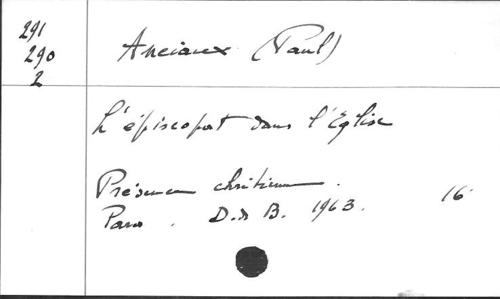 291
290
2
Anciaux (Paul)
L'épiscopat dans l'Église
Présence chrétienne.
Paris. D. de B. 1963. 16